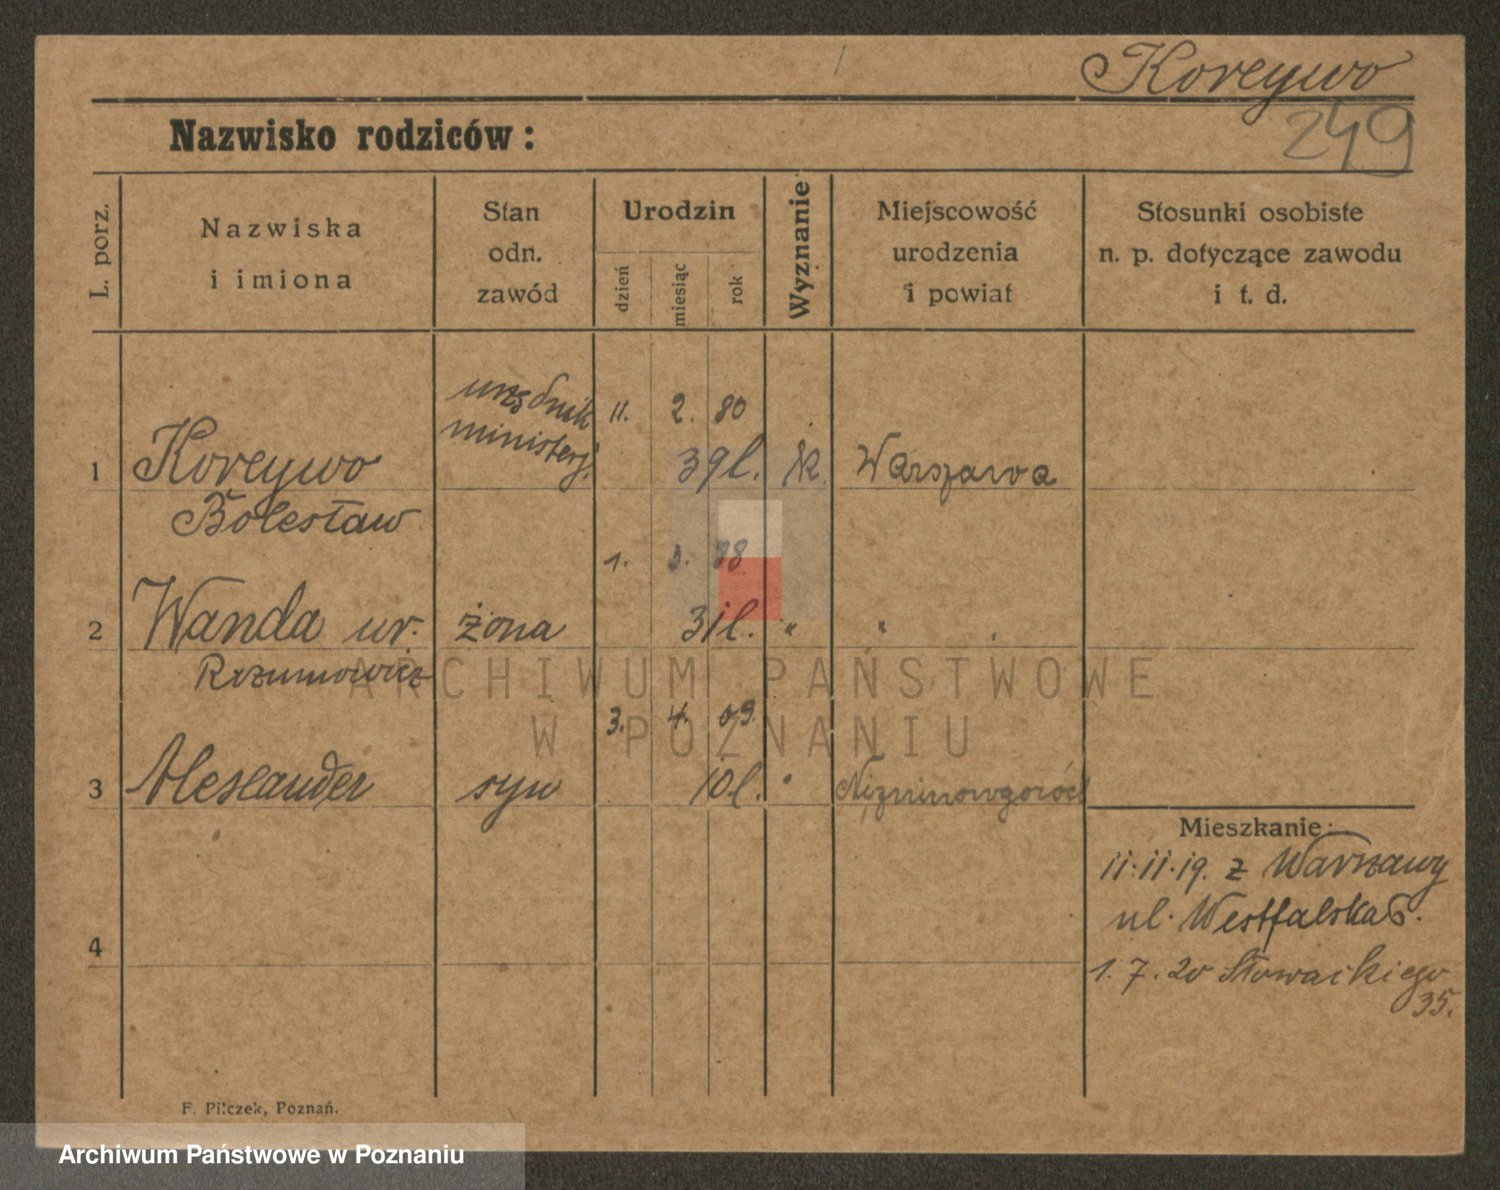 Koreywo
249
Nazwisko rodziców:
L. porz.
Nazwiska
i imiona
Stan
odn.
zawód
Urodzin
dzień
miesiąc
rok
Wyznanie
Miejscowość
urodzenia
i powiat
Stosunki osobiste
n. p. dotyczące zawodu
i t. d.
urzędnik
ministerj.
11. 2. 80
1 Koreywo 39 l. k. Warszawa
Bolesław
1. 3. 88
2 Wanda ur. żona 31 l. " "
Rozumowicz
3. 4. 09.
3 Alexander syn 10 l. " Niżninowgoród
4
Mieszkanie:
11.11.19. z Warszawy
ul. Westfalska 6.
1.7.20 Słowackiego
35.
F. Pilczek, Poznań.
ARCHIWUM PAŃSTWOWE
W POZNANIU
Archiwum Państwowe w Poznaniu